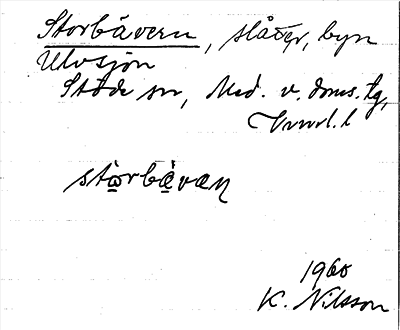 Storbävern, slåtter, byn
Ulvsjön
Stöde sn, Med. v. doms. tg,
Vnorl. l
störbävaɳ
1960
K. Nilsson